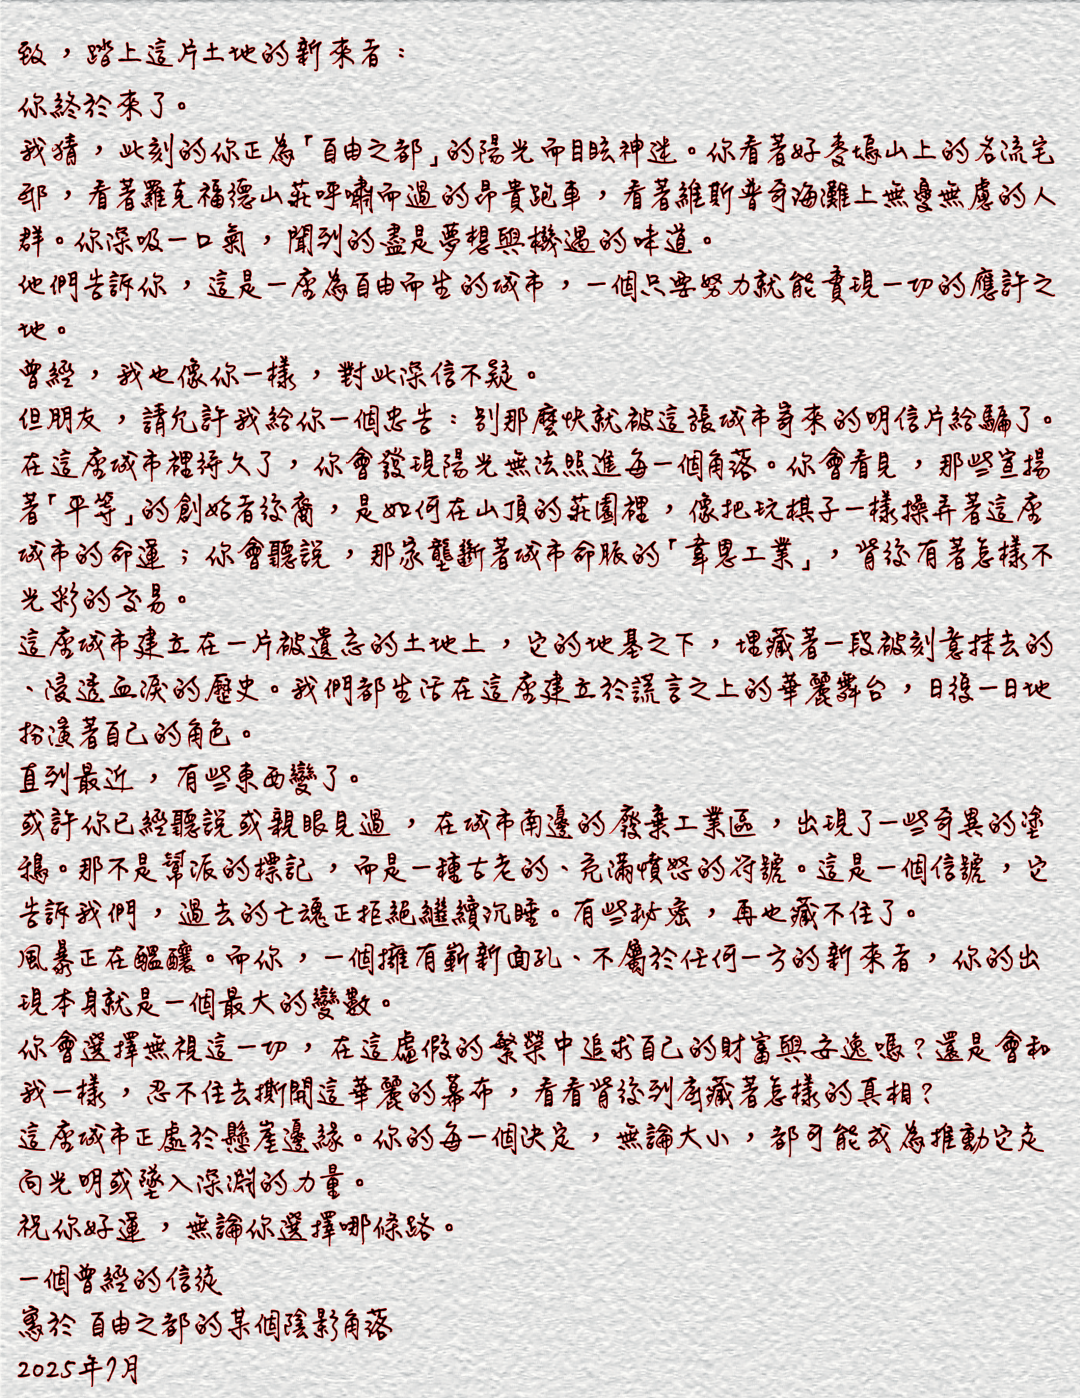 致，踏上這片土地的新來者：
你終於來了。
我猜，此刻的你正為「自由之都」的陽光而目眩神迷。你看著好麥塢山上的名流宅
邸，看著羅克福德山莊呼嘯而過的昂貴跑車，看著維斯普奇海灘上無憂無慮的人
群。你深吸一口氣，聞到的盡是夢想與機遇的味道。
他們告訴你，這是一座為自由而生的城市，一個只要努力就能實現一切的應許之
地。
曾經，我也像你一樣，對此深信不疑。
但朋友，請允許我給你一個忠告：別那麼快就被這張城市寄來的明信片給騙了。
在這座城市裡待久了，你會發現陽光無法照進每一個角落。你會看見，那些宣揚
著「平等」的創始者後裔，是如何在山頂的莊園裡，像把玩棋子一樣操弄著這座
城市的命運；你會聽說，那家壟斷著城市命脈的「韋恩工業」，背後有著怎樣不
光彩的交易。
這座城市建立在一片被遺忘的土地上，它的地基之下，埋藏著一段被刻意抹去的
、浸透血淚的歷史。我們都生活在這座建立於謊言之上的華麗舞台，日復一日地
扮演著自己的角色。
直到最近，有些東西變了。
或許你已經聽說或親眼見過，在城市南邊的廢棄工業區，出現了一些奇異的塗
鴉。那不是幫派的標記，而是一種古老的、充滿憤怒的符號。這是一個信號，它
告訴我們，過去的亡魂正拒絕繼續沉睡。有些秘密，再也藏不住了。
風暴正在醞釀。而你，一個擁有嶄新面孔、不屬於任何一方的新來者，你的出
現本身就是一個最大的變數。
你會選擇無視這一切，在這虛假的繁榮中追求自己的財富與安逸嗎？還是會和
我一樣，忍不住去撕開這華麗的幕布，看看背後到底藏著怎樣的真相？
這座城市正處於懸崖邊緣。你的每一個決定，無論大小，都可能成為推動它走
向光明或墜入深淵的力量。
祝你好運，無論你選擇哪條路。
一個曾經的信徒
寫於 自由之都的某個陰影角落
2025年7月